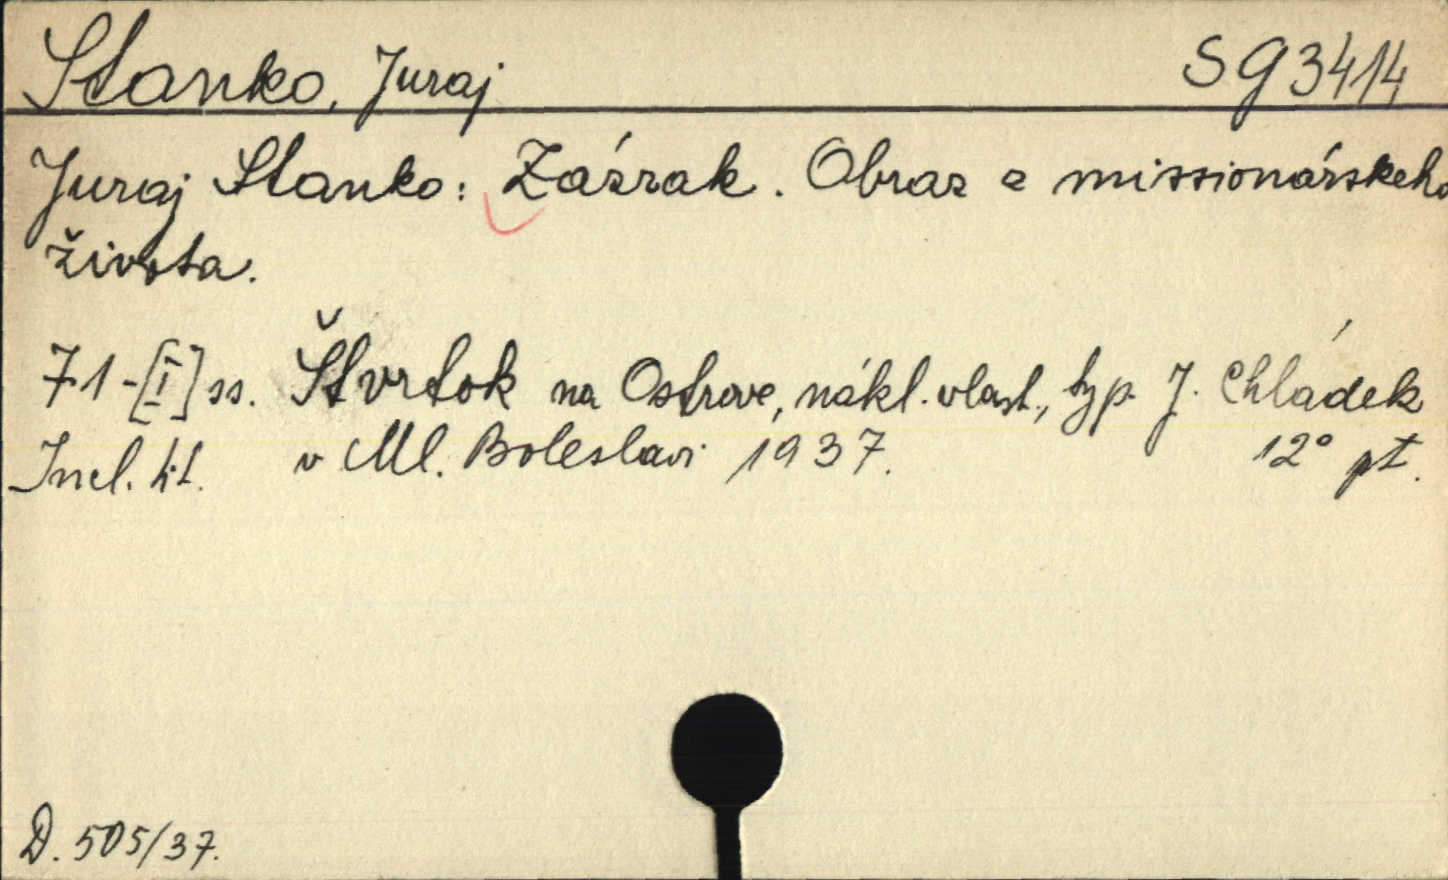 Stanko, Juraj SG3414
Juraj Stanko: Zázrak. Obraz z missionárskeho
života.
71-[I] ss. Štvrtok na Ostrove, nákl. vlast., typ. J. Chládek
Incl. tit. v Ml. Boleslavi 1937. 12° pt.
D. 505/37.